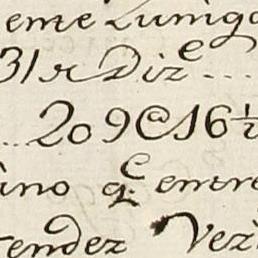 eme Lunigo
31 de Diz^e ...
... 209@16½
ino q^e entre
tendez Vez